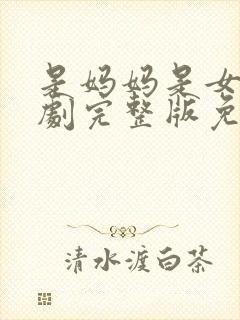 是妈妈是女
劇完整版免
清水渡白茶